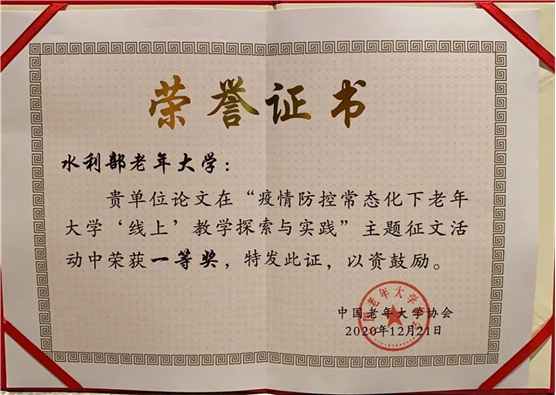 荣誉证书
水利部老年大学：
贵单位论文在“疫情防控常态化下老年
大学‘线上’教学探索与实践”主题征文活
动中荣获一等奖，特发此证，以资鼓励。
中国老年大学协会
2020年12月21日